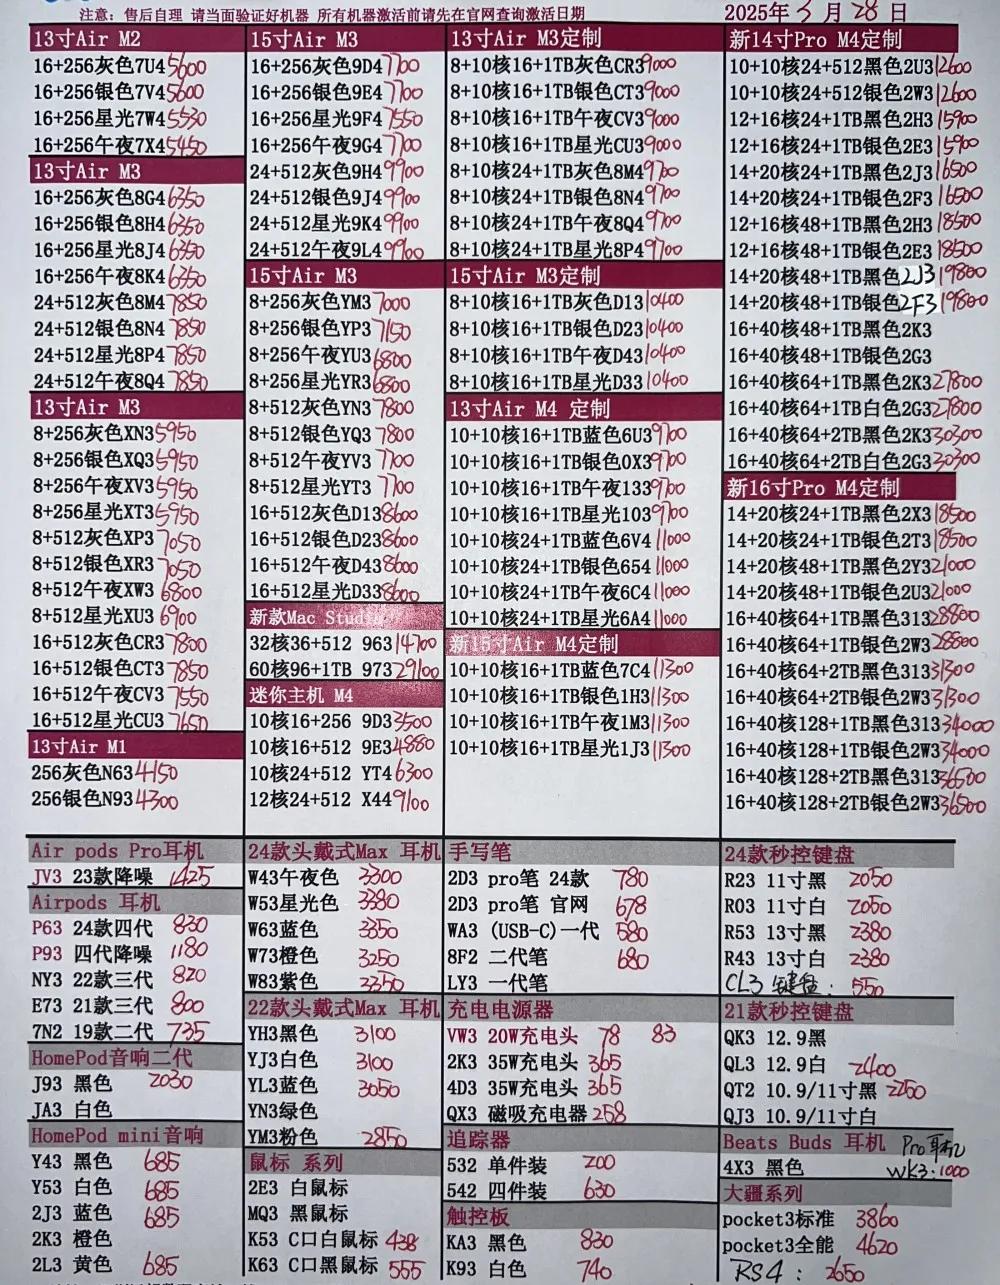 注意：售后自理 请当面验证好机器 所有机器激活前请先在官网查询激活日期
2025年3月28日
13寸Air M2
16+256灰色7U4 5600
16+256银色7V4 5600
16+256星光7W4 5530
16+256午夜7X4 5450
13寸Air M3
16+256灰色8G4 6350
16+256银色8H4 6350
16+256星光8J4 6350
16+256午夜8K4 6350
24+512灰色8M4 7850
24+512银色8N4 7850
24+512星光8P4 7850
24+512午夜8Q4 7850
13寸Air M3
8+256灰色XN3 5950
8+256银色XQ3 5950
8+256午夜XV3 5950
8+256星光XT3 5950
8+512灰色XP3 7050
8+512银色XR3 7050
8+512午夜XW3 6800
8+512星光XU3 6900
16+512灰色CR3 7800
16+512银色CT3 7850
16+512午夜CV3 7550
16+512星光CU3 7650
13寸Air M1
256灰色N63 4150
256银色N93 4300
15寸Air M3
16+256灰色9D4 7700
16+256银色9E4 7700
16+256星光9F4 7550
16+256午夜9G4 7700
24+512灰色9H4 9900
24+512银色9J4 9900
24+512星光9K4 9900
24+512午夜9L4 9900
15寸Air M3
8+256灰色YM3 7000
8+256银色YP3 7150
8+256午夜YU3 6800
8+256星光YR3 6800
8+512灰色YN3 7800
8+512银色YQ3 7800
8+512午夜YV3 7700
8+512星光YT3 7700
16+512灰色D13 8600
16+512银色D23 8600
16+512午夜D43 8600
16+512星光D33 8600
新款Mac Studio
32核36+512 963 14700
60核96+1TB 973 29100
迷你主机 M4
10核16+256 9D3 3500
10核16+512 9E3 4880
10核24+512 YT4 6300
12核24+512 X44 9100
13寸Air M3定制
8+10核16+1TB灰色CR3 9000
8+10核16+1TB银色CT3 9000
8+10核16+1TB午夜CV3 9000
8+10核16+1TB星光CU3 9000
8+10核24+1TB灰色8M4 9700
8+10核24+1TB银色8N4 9700
8+10核24+1TB午夜8Q4 9700
8+10核24+1TB星光8P4 9700
15寸Air M3定制
8+10核16+1TB灰色D13 10400
8+10核16+1TB银色D23 10400
8+10核16+1TB午夜D43 10400
8+10核16+1TB星光D33 10400
13寸Air M4 定制
10+10核16+1TB蓝色6U3 9700
10+10核16+1TB银色0X3 9700
10+10核16+1TB午夜133 9700
10+10核16+1TB星光103 9700
10+10核24+1TB蓝色6V4 11000
10+10核24+1TB银色654 11000
10+10核24+1TB午夜6C4 11000
10+10核24+1TB星光6A4 11000
新15寸Air M4定制
10+10核16+1TB蓝色7C4 11300
10+10核16+1TB银色1H3 11300
10+10核16+1TB午夜1M3 11300
10+10核16+1TB星光1J3 11300
新14寸Pro M4定制
10+10核24+512黑色2U3 12600
10+10核24+512银色2W3 12600
12+16核24+1TB黑色2H3 15900
12+16核24+1TB银色2E3 15900
14+20核24+1TB黑色2J3 16500
14+20核24+1TB银色2F3 16500
12+16核48+1TB黑色2H3 18500
12+16核48+1TB银色2E3 18500
14+20核48+1TB黑色2J3 19800
14+20核48+1TB银色2F3 19800
16+40核48+1TB黑色2K3
16+40核48+1TB银色2G3
16+40核64+1TB黑色2K3 27800
16+40核64+1TB白色2G3 27800
16+40核64+2TB黑色2K3 30300
16+40核64+2TB白色2G3 30300
新16寸Pro M4定制
14+20核24+1TB黑色2X3 18500
14+20核24+1TB银色2T3 18500
14+20核48+1TB黑色2Y3 21000
14+20核48+1TB银色2U3 21000
16+40核64+1TB黑色313 28800
16+40核64+1TB银色2W3 28800
16+40核64+2TB黑色313 31300
16+40核64+2TB银色2W3 31300
16+40核128+1TB黑色313 34000
16+40核128+1TB银色2W3 34000
16+40核128+2TB黑色313 36500
16+40核128+2TB银色2W3 36500
Air pods Pro耳机
JV3 23款降噪 1425
Airpods 耳机
P63 24款四代 830
P93 四代降噪 1180
NY3 22款三代 820
E73 21款三代 800
7N2 19款二代 735
HomePod音响二代
J93 黑色 2030
JA3 白色
HomePod mini音响
Y43 黑色 685
Y53 白色 685
2J3 蓝色 685
2K3 橙色
2L3 黄色 685
24款头戴式Max 耳机
W43午夜色 3300
W53星光色 3380
W63蓝色 3350
W73橙色 3250
W83紫色 3350
22款头戴式Max 耳机
YH3黑色 3100
YJ3白色 3100
YL3蓝色 3050
YN3绿色
YM3粉色 2850
鼠标 系列
2E3 白鼠标
MQ3 黑鼠标
K53 C口白鼠标 438
K63 C口黑鼠标 555
手写笔
2D3 pro笔 24款 780
2D3 pro笔 官网 678
WA3 (USB-C)一代 580
8F2 二代笔 680
LY3 一代笔
充电电源器
VW3 20W充电头 78 83
2K3 35W充电头 365
4D3 35W充电头 365
QX3 磁吸充电器 258
追踪器
532 单件装 200
542 四件装 630
触控板
KA3 黑色 830
K93 白色 740
24款秒控键盘
R23 11寸黑 2050
R03 11寸白 2050
R53 13寸黑 2380
R43 13寸白 2380
CL3 键盘：550
21款秒控键盘
QK3 12.9黑
QL3 12.9白 2400
QT2 10.9/11寸黑 2250
QJ3 10.9/11寸白
Beats Buds 耳机 Pro耳机
4X3 黑色 WK3：1000
大疆系列
pocket3标准 3860
pocket3全能 4620
RS4：2650